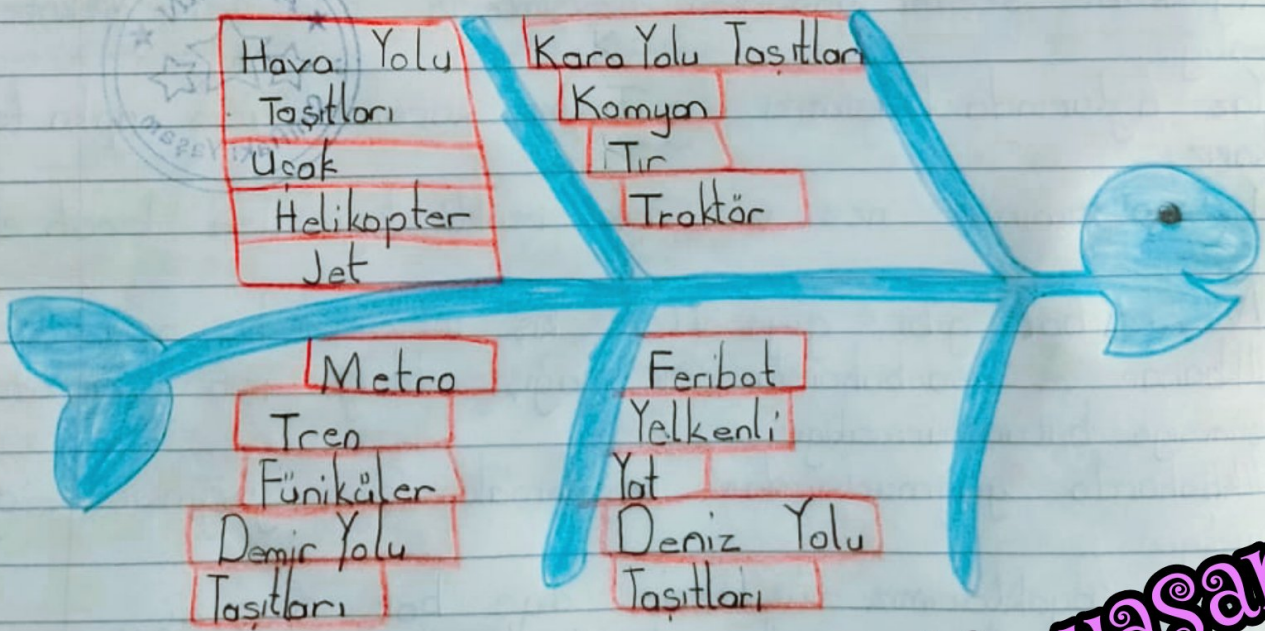 Hava Yolu
Taşıtları
Uçak
Helikopter
Jet
Kara Yolu Taşıtları
Kamyon
Tır
Traktör
Metro
Tren
Füniküler
Demir Yolu
Taşıtları
Feribot
Yelkenli
Yat
Deniz Yolu
Taşıtları